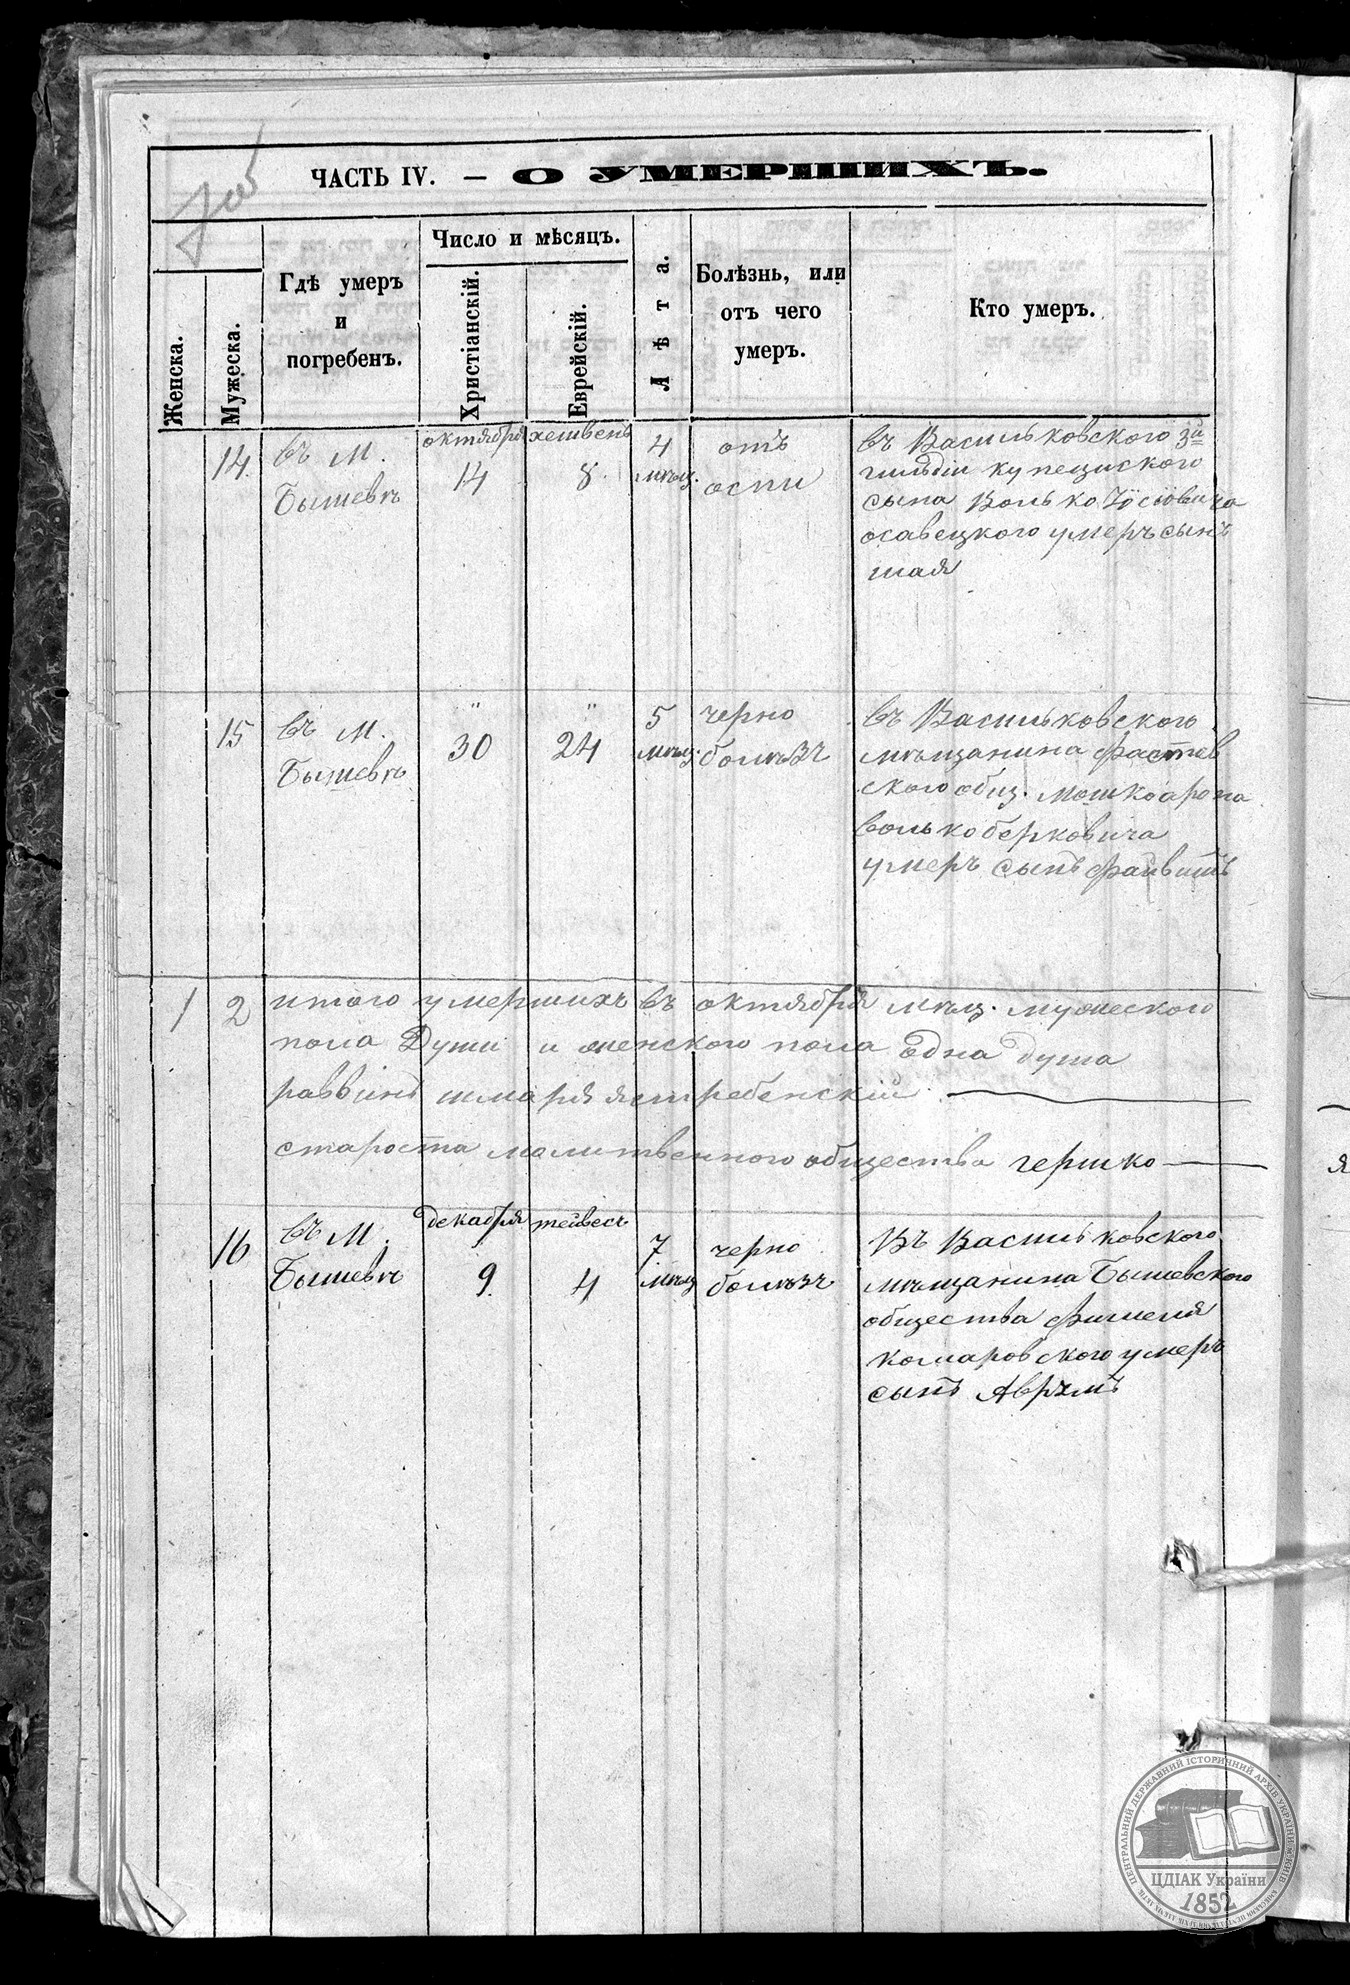 ЧАСТЬ IV. — О УМЕРШИХЪ.
Женска.
Мужеска.
Гдѣ умеръ
и
погребенъ.
Число и мѣсяцъ.
Христіанскій.
Еврейскій.
Лѣта.
Болѣзнь, или
отъ чего
умеръ.
Кто умеръ.
14.
въ М.
Бышевѣ
октября
14
хешвень
8.
4
мѣсц.
отъ
оспи
въ Васильковского 3й
гильдіи купецского
сына Волько Іосіовича
осавецкого умеръ сынъ
шая
15
въ М.
Бышевѣ
"
30
"
24
5
мѣсц.
черно
болѣзъ
въ Васильковского
мѣщанина Фастов
ского общ. мошко арона
волько берковича
умеръ сынъ Файвишъ
1
2
итого умершихъ въ октября мѣсц. мужеского
пола Души и женского пола одна душа
раввинъ шмаря ястребенскій
староста молитвенного общества гершко
16
въ М.
Бышевѣ
декабря
9.
тейвесъ
4
7
мѣсц
черно
болѣзъ
Въ Васильковского
мѣщанина Бышевского
общества Фишеля
комаровского умеръ
сынъ Аврумъ
ЦЕНТРАЛЬНИЙ ДЕРЖАВНИЙ ІСТОРИЧНИЙ АРХІВ УКРАЇНИ, М.КИЇВ
ЦДІАК України
1852